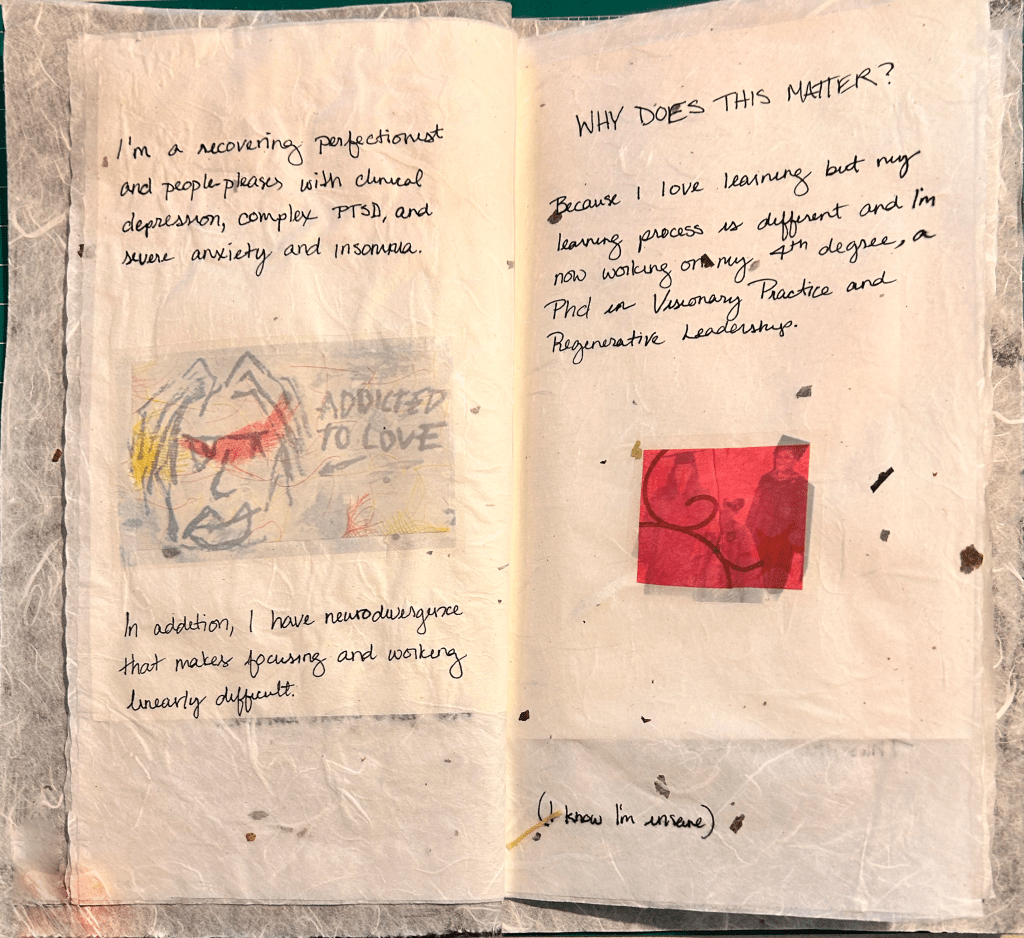 I'm a recovering perfectionist
and people-pleaser with clinical
depression, complex PTSD, and
severe anxiety and insomnia.
ADDICTED
TO LOVE
In addition, I have neurodivergence
that makes focusing and working
linearly difficult.
WHY DOES THIS MATTER?
Because I love learning but my
learning process is different and I'm
now working on my 4th degree, a
Phd in Visionary Practice and
Regenerative Leadership.
(I know I'm insane)